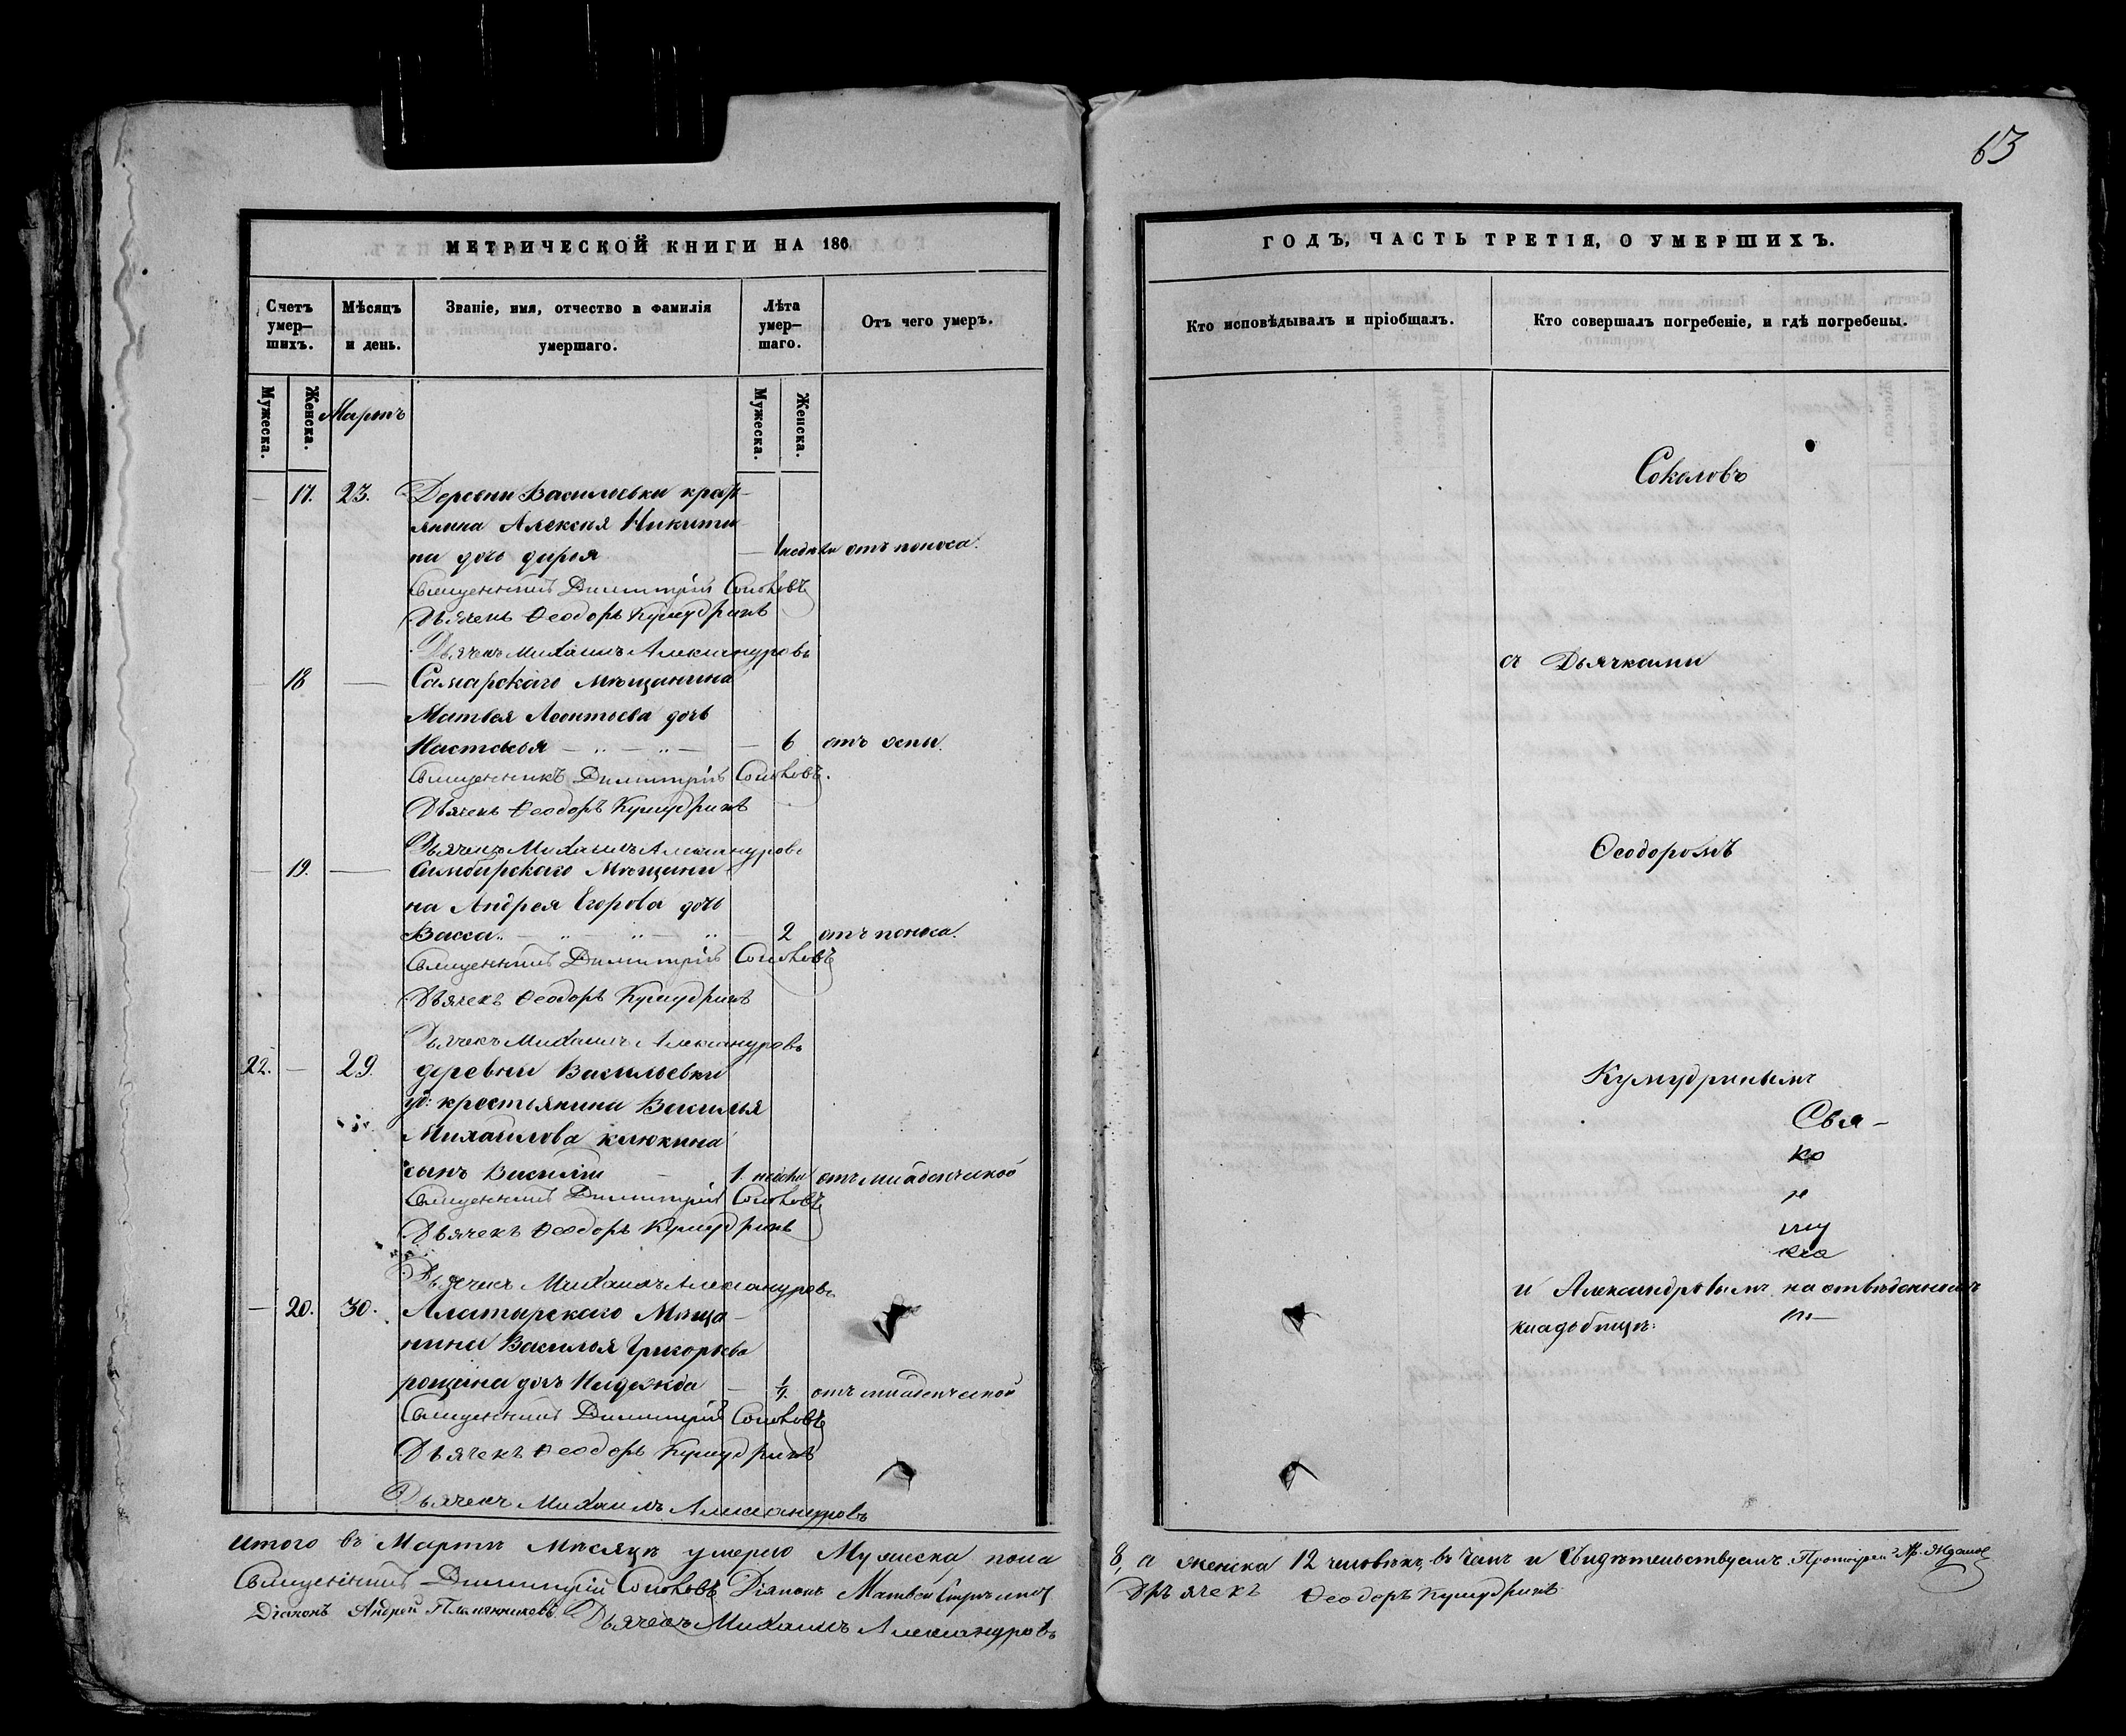 МЕТРИЧЕСКОЙ КНИГИ НА 186
Счетъ умер–шихъ.
Мѣсяцъ и день.
Званіе, имя, отчество и фамилія умершаго.
Лѣта умер–шаго.
Отъ чего умеръ.
Мужеска.
Женска.
Мартъ
Мужеска.
Женска.
— 17. 23. Деревни Васильевки кресть-
янина Алексѣя Никити-
на дочь дарья — 1 недели отъ поноса.
Священникъ Димитрій Соколовъ
Дьячекъ Ѳеодоръ Кумудринъ
Дьячекъ Михаилъ Александровъ
— 18 — Самарскаго мѣщанина
Матвея Леонтьева дочь
Настасья — 6 отъ оспы.
Священникъ Димитрій Соколовъ.
Дьячекъ Ѳеодоръ Кумудринъ
Дьячекъ Михаилъ Александровъ
— 19. — Симбирскаго Мѣщани-
на Андрея Егорова дочь
Васса — 2 отъ поноса.
Священникъ Димитрій Соколовъ
Дьячекъ Ѳеодоръ Кумудринъ
Дьячекъ Михаилъ Александровъ
22. — 29. деревни Васильевки
уд: крестьянина Василья
Михайлова клюкина
сынъ Василій — 1. недели отъ младенческой
Священникъ Димитрій Соколовъ
Дьячекъ Ѳеодоръ Кумудринъ
Дьячекъ Михаилъ Александровъ
— 20. 30. Алатырскаго Мѣща-
нина Василья Григорьева
рощина дочь Надежда — отъ младенческой
Священникъ Димитрій Соколовъ
Дьячекъ Ѳеодоръ Кумудринъ
Дьячекъ Михаилъ Александровъ
итого въ Мартѣ Мѣсяцѣ умерло Мужеска пола
Священникъ Димитрій Соколовъ Діаконъ Матвей
Діаконъ Андрей Племянниковъ Дьячекъ Михаилъ Александровъ
63
ГОДЪ, ЧАСТЬ ТРЕТІЯ, О УМЕРШИХЪ.
Кто исповѣдывалъ и пріобщалъ.
Кто совершалъ погребеніе, и гдѣ погребены.
Соколовъ
съ Дьячками
Ѳеодоромъ
Кумудринымъ
Свя-
ко
и Александровымъ на отвѣденномъ
кладбищѣ:
8, а женска 12 человѣкъ, въ чемъ и свидѣтельствуемъ. Протоіерей Ждановъ
Дьячекъ Ѳеодоръ Кумудринъ